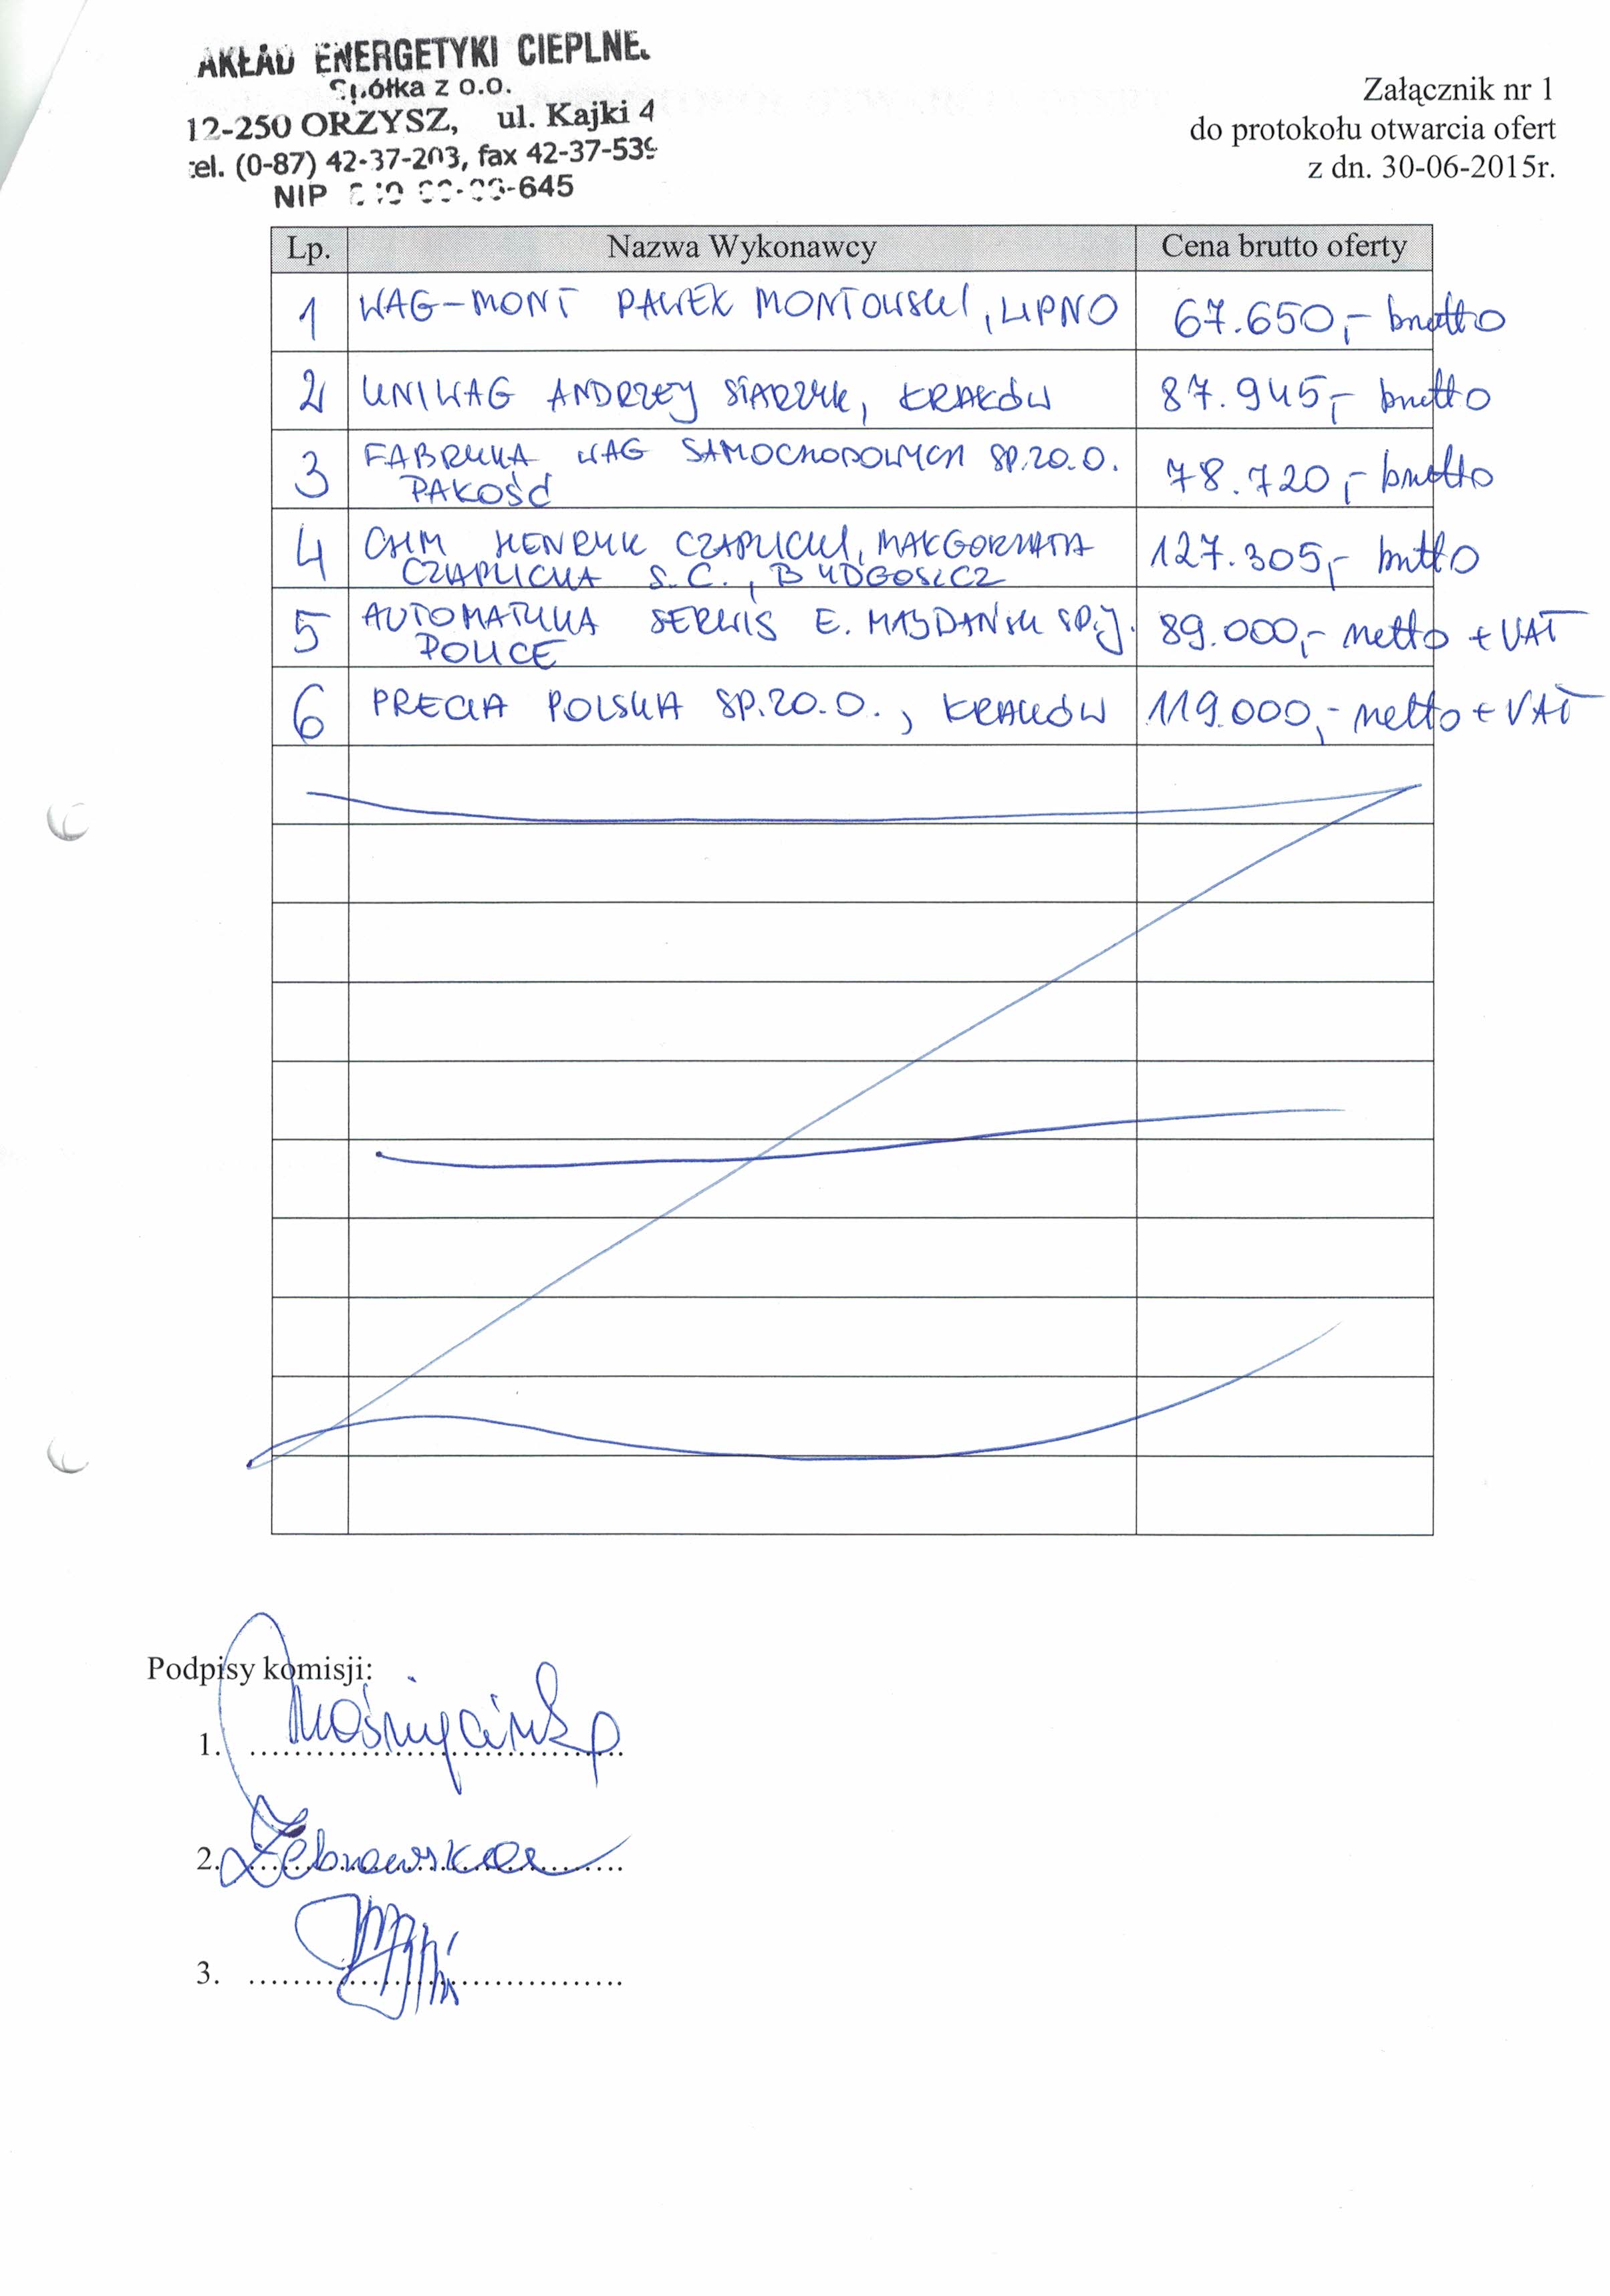 AKŁAD ENERGETYKI CIEPLNE
Spółka z o.o.
12-250 ORZYSZ, ul. Kajki 4
tel. (0-87) 42-37-203, fax 42-37-539
NIP -645
Załącznik nr 1
do protokołu otwarcia ofert
z dn. 30-06-2015r.
Lp. Nazwa Wykonawcy Cena brutto oferty
1 WAG-MONT PAWEŁ MONTOWSKI, LIPNO 67.650,- brutto
2 UNIWAG ANDRZEJ SIARZYK, KRAKÓW 87.945,- brutto
3 FABRYKA WAG SAMOCHODOWYCH SP. ZO.O.
PAKOŚĆ 78.720,- brutto
4 CHM HENRYK CZAPLICKI, MAŁGORZATA
CZAPLICKA S.C., BYDGOSZCZ 127.305,- brutto
5 AUTOMATYKA SERWIS E. MAJDAŃSKI SP.J.
POLICE 89.000,- netto + VAT
6 PRECIA POLSKA SP.ZO.O., KRAKÓW 119.000,- netto + VAT
Podpisy komisji:
1.
2. Żebrowska
3.